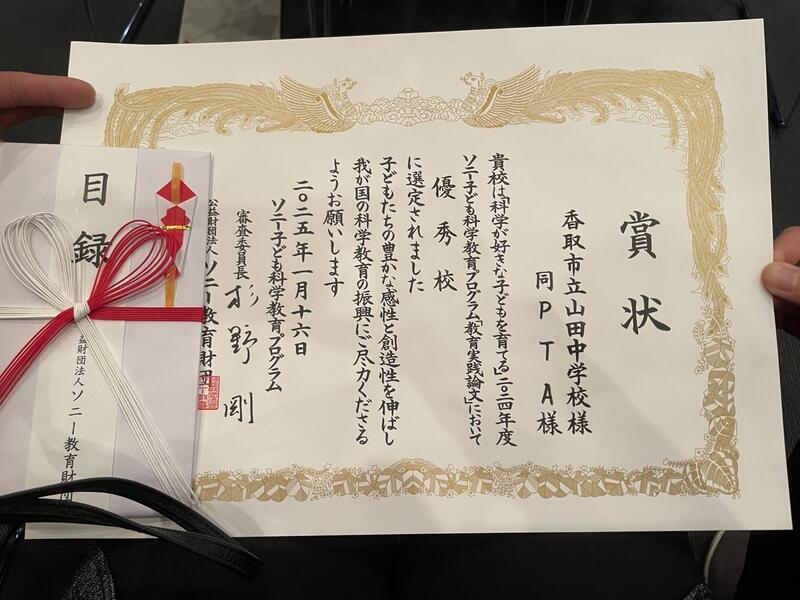 賞状
香取市立山田中学校様
同PTA様
貴校は「科学が好きな子どもを育てる」二〇二四年度
ソニー子ども科学教育プログラム「教育実践論文」において
優秀校
に選定されました
子どもたちの豊かな感性と創造性を伸ばし
我が国の科学教育の振興にご尽力くださる
ようお願いします
二〇二五年一月十六日
ソニー子ども科学教育プログラム
審査委員長 杉野 剛
公益財団法人 ソニー教育財団
目録
益財団法人 ソニー教育財団